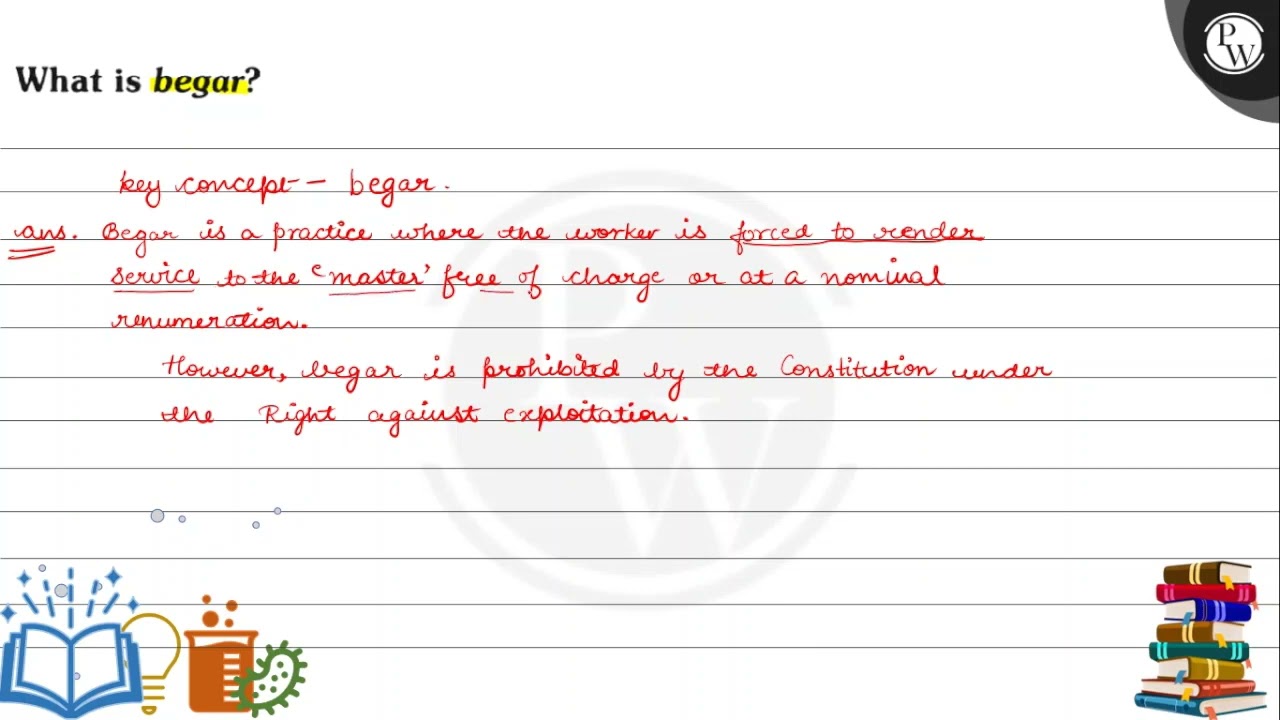 What is begar?
PW
key concept - begar.
ans. Begar is a practice where the worker is forced to render
service to the 'master' free of charge or at a nominal
renumeration.
However, begar is prohibited by the Constitution under
the Right against exploitation.
PW